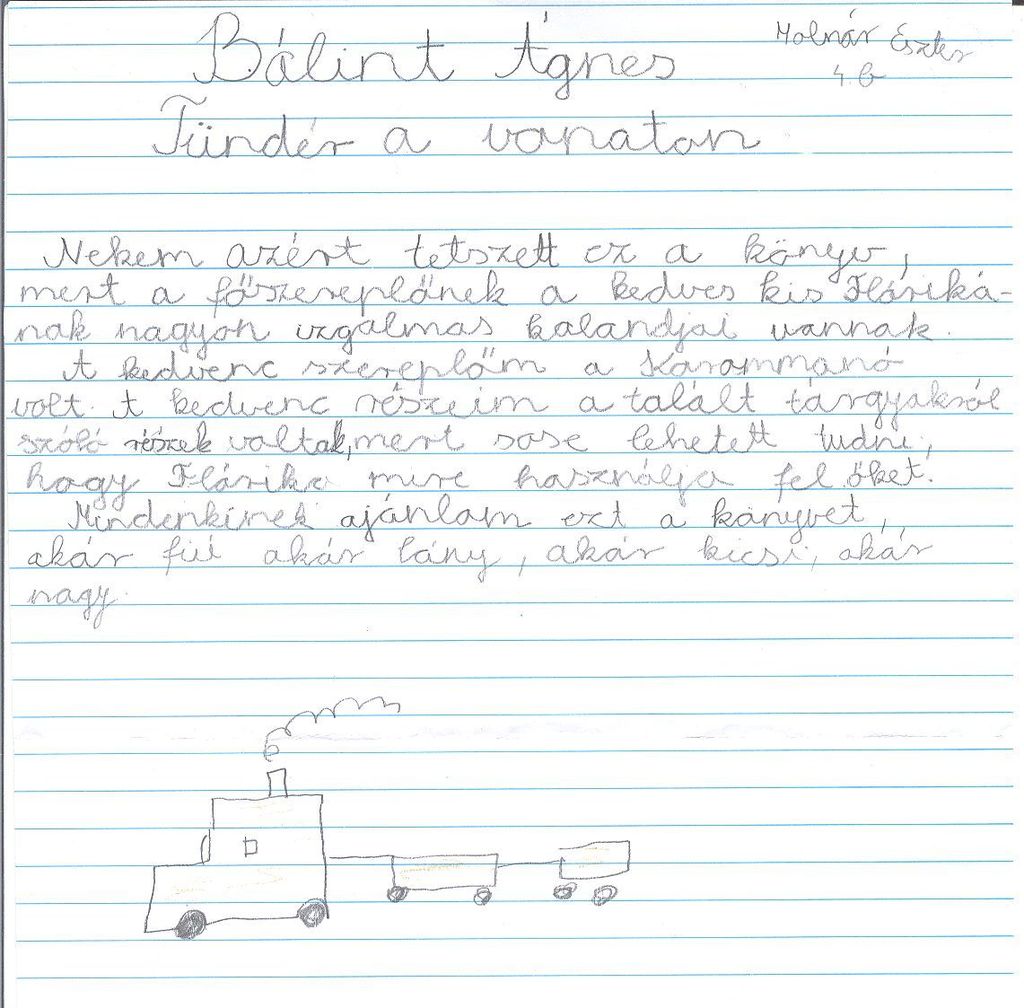 Bálint Ágnes
Molnár Eszter
4. b
Tündér a vonaton
Nekem azért tetszett ez a könyv,
mert a főszereplőnek a kedves kis Flóriká-
nak nagyon izgalmas kalandjai vannak.
A kedvenc szereplőm a Korommanó
volt. A kedvenc részeim a talált tárgyakról
szóló részek voltak, mert sose lehetett tudni,
hogy Flórika mire használja fel őket.
Mindenkinek ajánlom ezt a könyvet,
akár fiú akár lány, akár kicsi, akár
nagy.